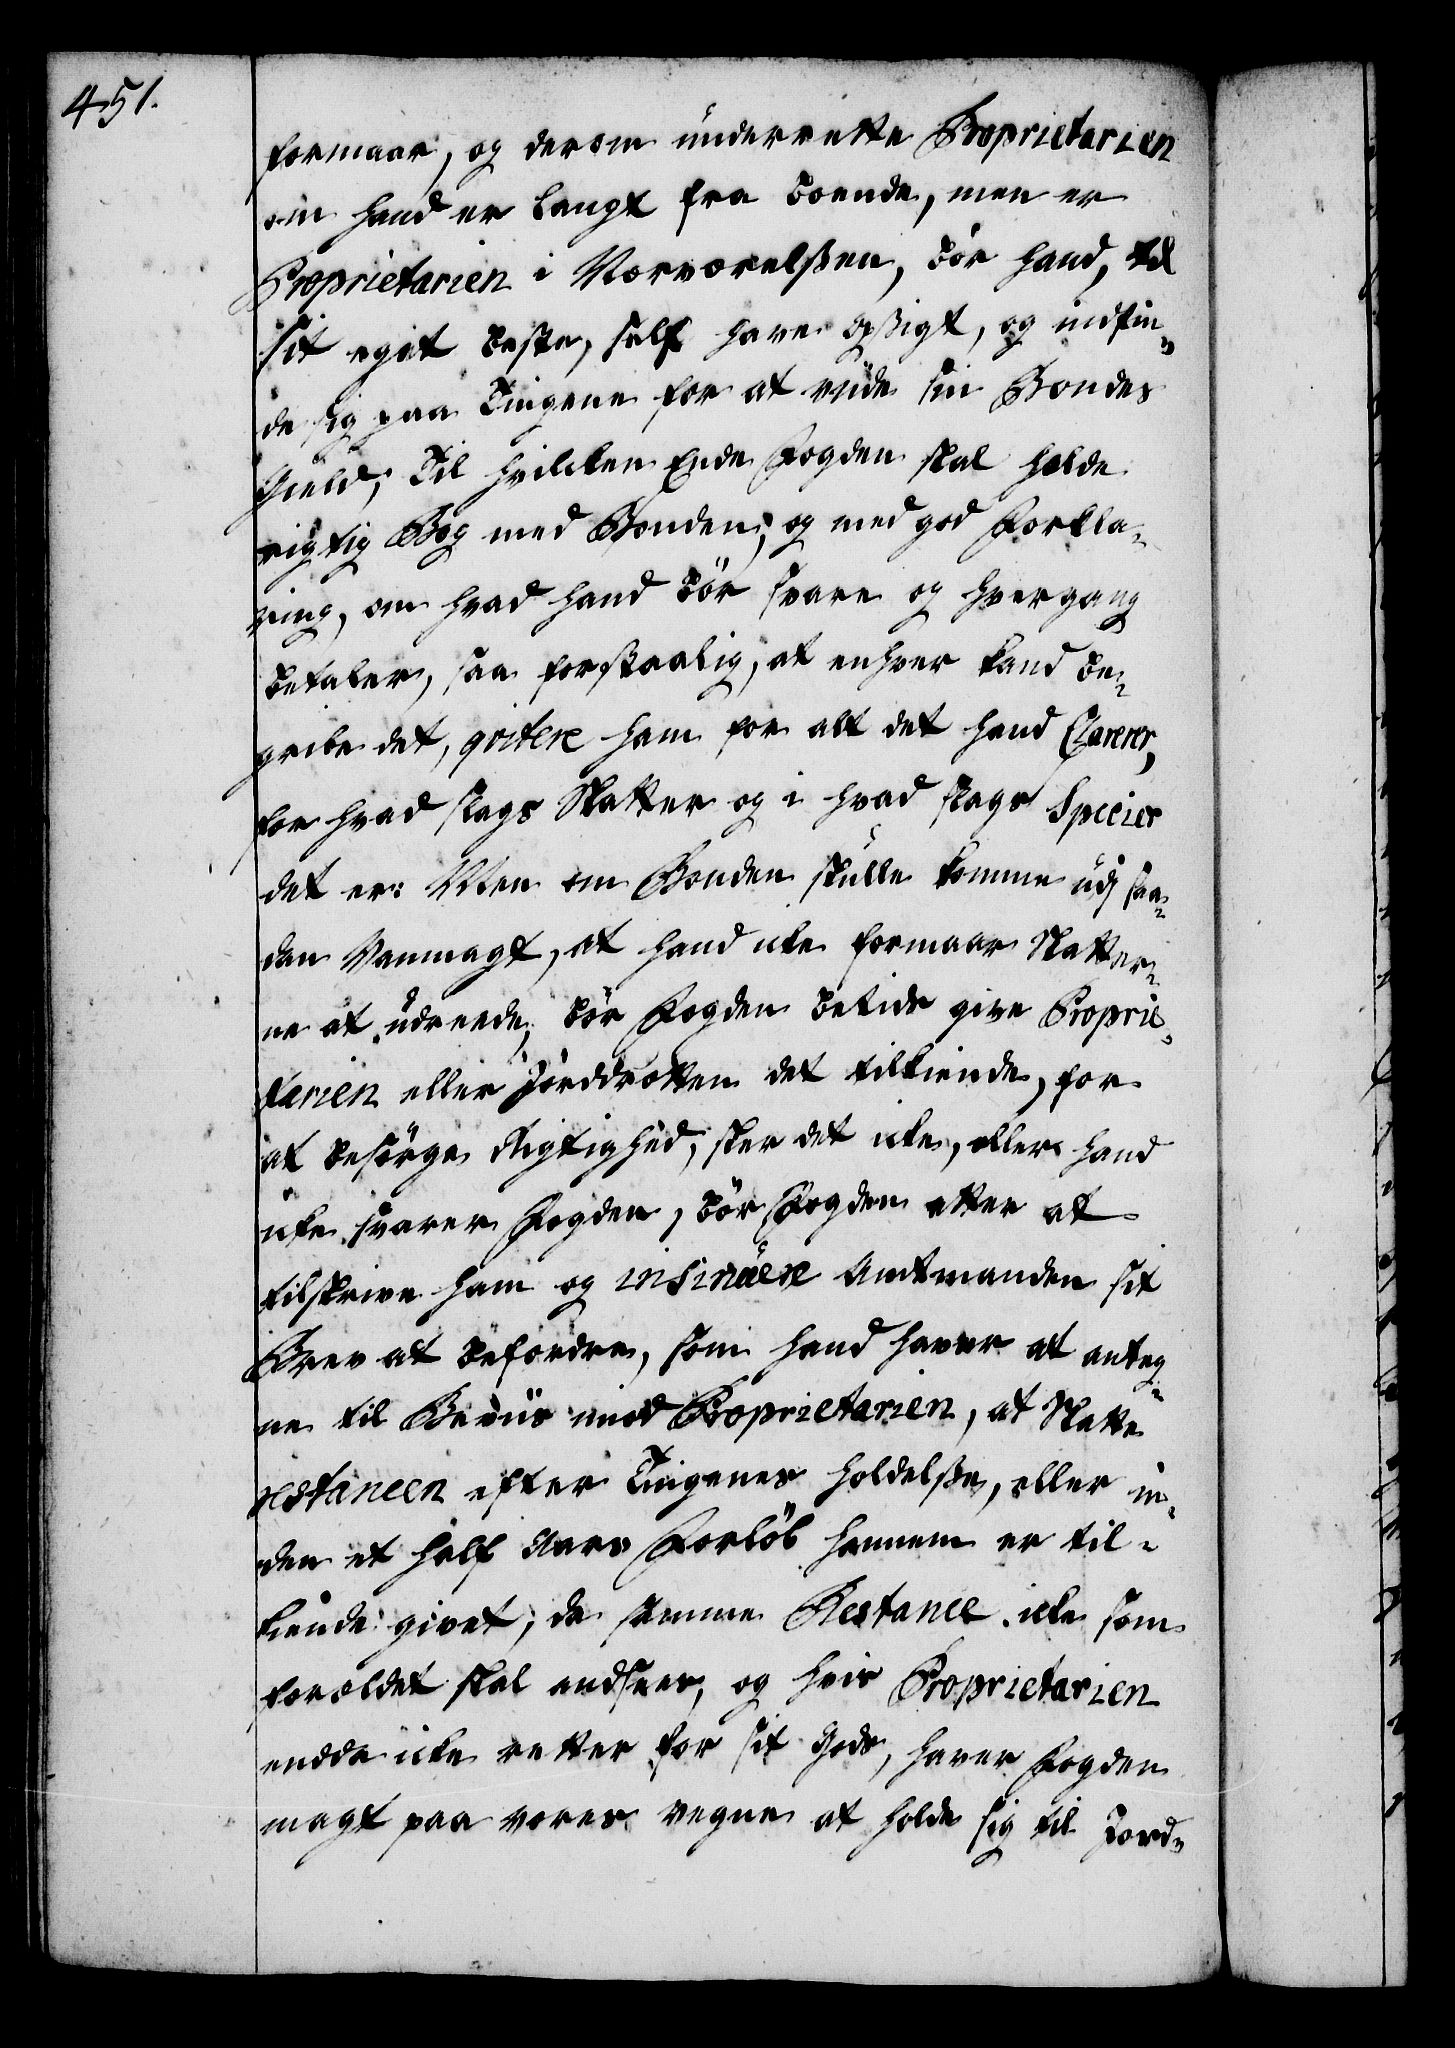 451.
formaar, og derom underrette Proprietarien
om hand er langt fra boende, men er
Proprietarien i Nærværelßen, bör hand, til
sit eget beste, self have Opsigt, og indfin¬
de sig paa Tingene for at viide sin Bondes
Gield; Til hvilcken Ende Fogden skal holde
rigtig Bog med Bonden, og med god Forkla¬
ring, om hvad hand bör svare og hvergang
betaler, saa forstaalig, at enhver kand be¬
gribe det, qvitere ham for alt det hand Clarerer,
for hvad slags Skatter og i hvad slags Species
det er: Men om Bonden skulle komme udj saa¬
dan Vanmagt, at hand icke formaar Skatter¬
ne at udreede, bör Fogden betids give Proprie¬
tarien eller Jorddrotten det tilkiende, for
at besörge Rigtighed, sker det icke, eller hand
icke svarer Fogden, bör Fogden atter at
tilskrive ham og insinuere Amtmanden sit
Brev at befordre, som hand haver at anteg¬
ne til Beviis imod Proprietarien, at Skatte
restancen efter Tingenes Holdelße, eller in¬
den et half Aars Forlöb hannem er til¬
kiende givet, da samme Restance icke som
forældet skal andsees, og hvis Proprietarien
endda icke retter for sit Gods, haver Fogden
magt paa vores vegne at holde sig til Jord¬